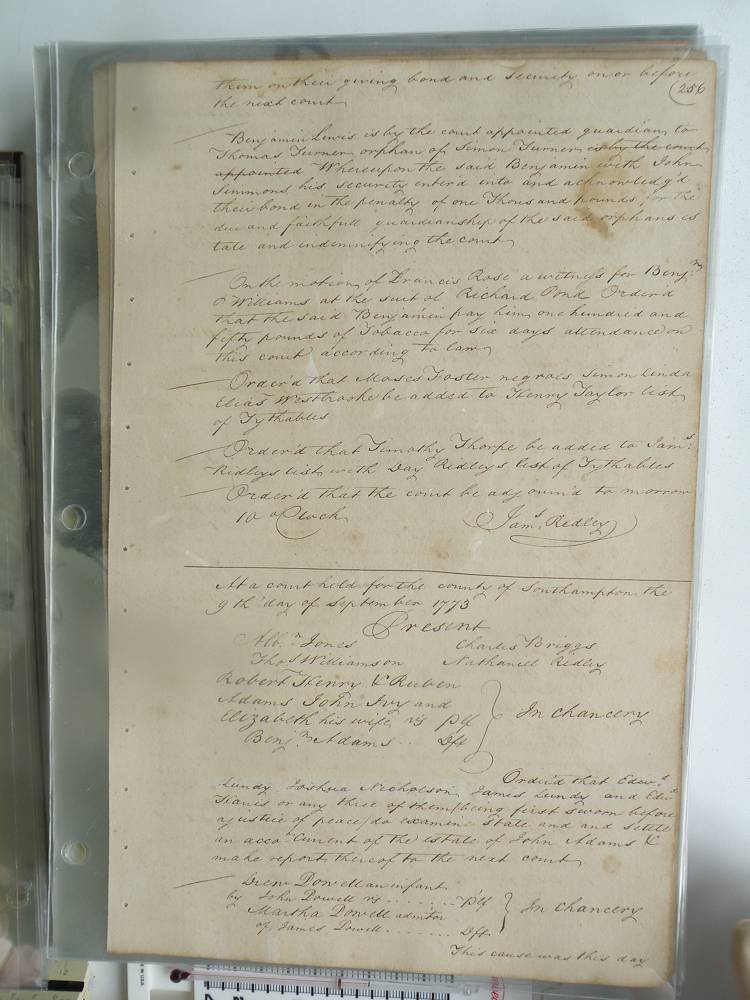 them on their giving bond and Security on or before
(256
the next court
Benjamin Lewis is by the court appointed guardian to
Thomas Turner orphan of Simon Turner is by the court
appointed Whereupon the said Benjamin with John
Simmons his security enter'd into and acknowledg'd
their bond in the penalty of one Thousand pounds for the
due and faithfull guardianship of the said orphans es
tate and indemnifying the court
On the motion of Francis Rose a witness for Benjn
Williams at the suit of Richard Pond Order'd
that the said Benjamin pay him one hundred and
fifty pounds of Tobacco for six days attendance on
this court according to law
Order'd that Moses Foster negroes Simon Linda
Elias Westbrooke be added to Henry Taylor list
of Tythables
Order'd that Timothy Thorpe be added to Jams
Ridleys list with Day Ridleys list of Tythables
Order'd that the court be adjourn'd to morrow
10 o Clock
Jams Ridley
At a court held for the county of Southampton the
9th day of September 1773
Present
Albn Jones Charles Briggs
Thos Williamson Nathaniel Ridley
Robert Henry & Reuben
Adams John Ivy and
Elizabeth his wife vs plf
In Chancery
Benjn Adams .. Dft
Order'd that Edwd
Lundy Joshua Nicholson James Lundy and Edwd
Harris or any three of them (being first sworn before
a justice of peace) do examin State and and settle
an accot Current of the estate of John Adams &
make report thereof to the next court
Drew Dowell an infant
by John Dowell vs ....... plf
In Chancery
Martha Dowell admtrx
of James Dowell ....... Dft
This cause was this day